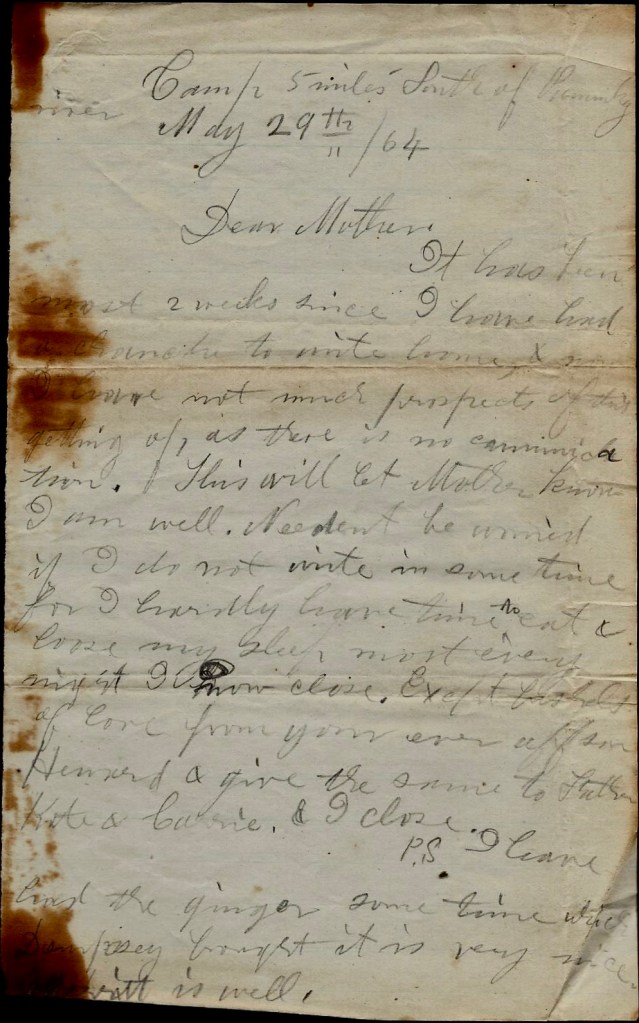 Camp 5 miles South of
river
May 29th /64
Dear Mother.
It has been
most 2 weeks since I have had
a chanche to write home, & now
I have not much prospects of this
getting of, as there is no cammunica
tion. This will let Mother know
I am well. Needent be worried
if I do not write in some time
for I hardly have time to eat &
loose my sleep most every
night I now close. Except
of love from your ever aff son
Howard & give the same to Father
Kate & Carrie. & I close.
P.S I have
had the ginger some time which
Dempsey bought it is very nice.
is well.